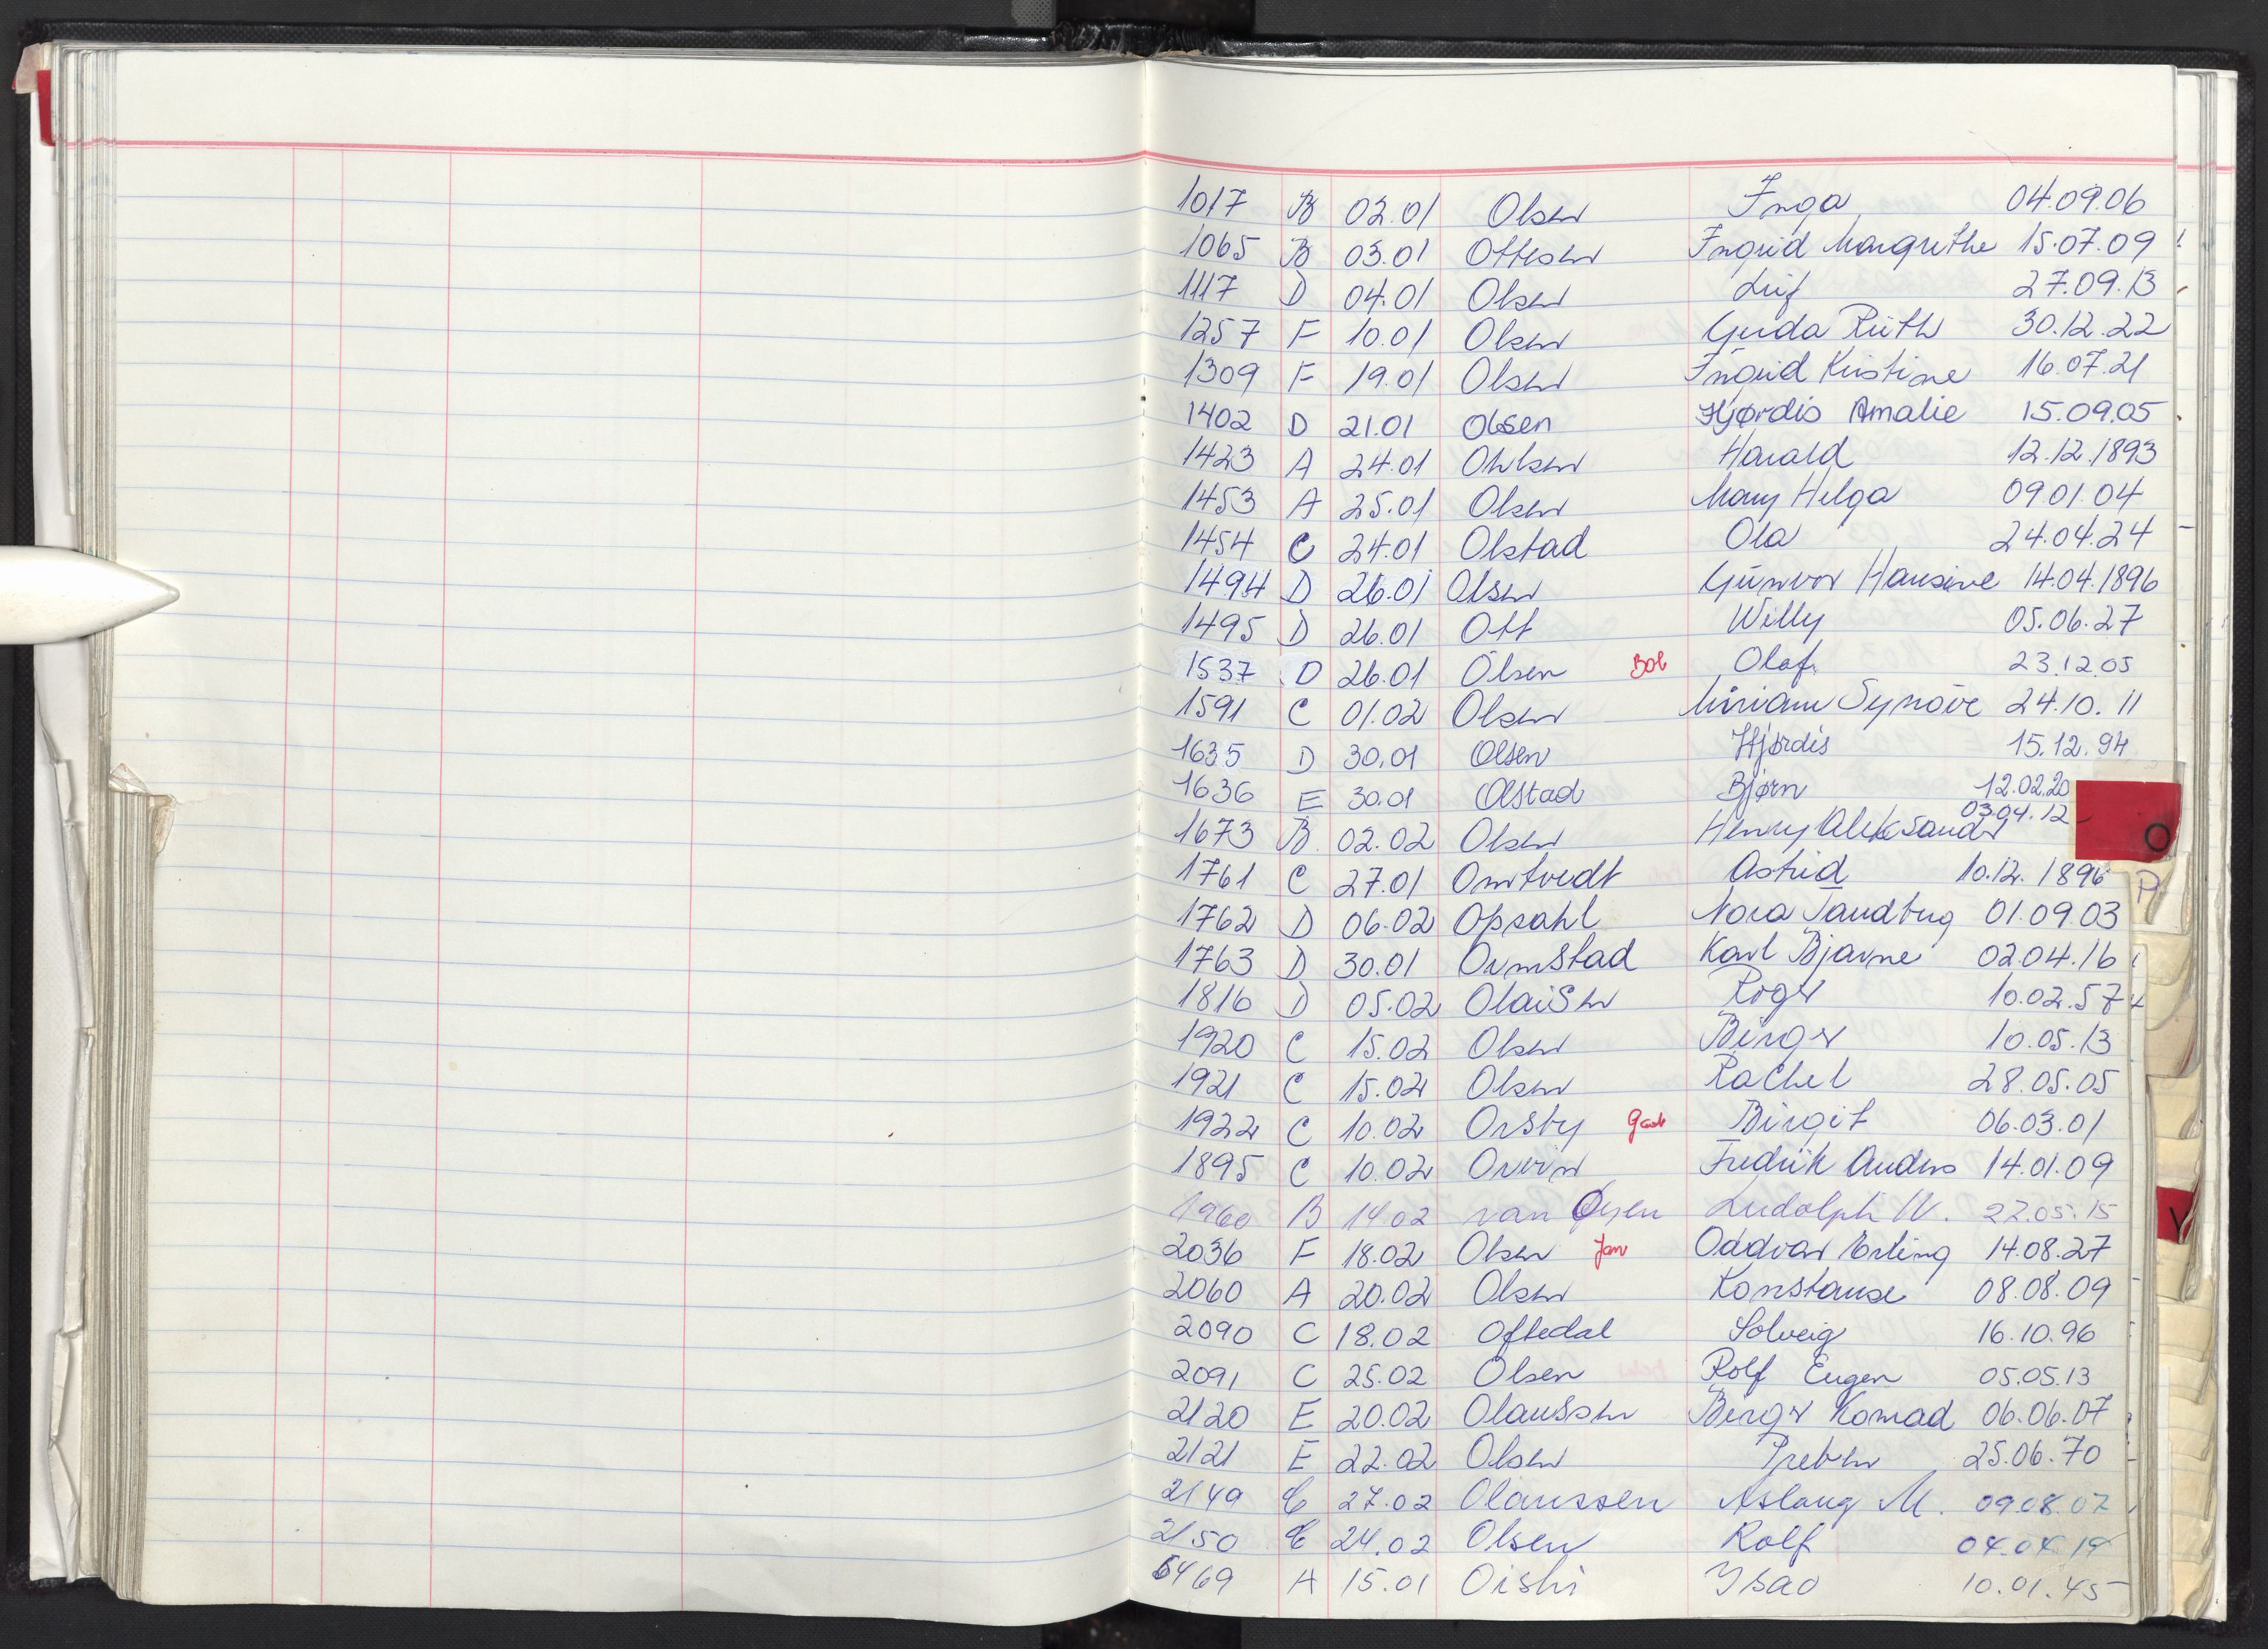 1017 B 02.01 Olsen Inga 04.09.06
1065 B 03.01 Ottesen Ingrid Margrethe 15.07.09
1117 D 04.01 Olsen Leif 27.09.13
1257 F 10.01 Olsen Gerda Ruth 30.12.22
1309 F 19.01 Olsen Ingrid Kristine 16.07.21
1402 D 21.01 Olsen Hjørdis Amalie 15.09.05
1423 A 24.01 Ohlsen Harald 12.12.1893
1453 A 25.01 Olsen Mary Helga 09.01.04
1454 C 24.01 Olstad Ola 24.04.24
1494 D 26.01 Olsen Gunvor Hansine 14.04.1896
1495 D 26.01 Ott Willy 05.06.27
1537 D 26.01 Olsen Bob Olaf 23.12.05
1591 C 01.02 Olsen Miriam Synöve 24.10.11
1635 D 30.01 Olsen Hjørdis 15.12.94
1636 E 30.01 Olstad Bjørn 12.02.20
1673 B 02.02 Olsen Henry Aleksander 03.04.12
O
1761 C 27.01 Omtvedt Astrid 10.12.1896
P
1762 D 06.02 Opsahl Nora Tandberg 01.09.03
1763 D 30.01 Ormstad Karl Bjarne 02.04.16
1816 D 05.02 Olaisen Roger 10.02.57
1920 C 15.02 Olsen Birger 10.05.13
1921 C 15.02 Olsen Rachel 28.05.05
1922 C 10.02 Orsby Birgit 06.03.01
1895 C 10.02 Fredrik Anders 14.01.09
1960 B 14.02 van Oyen Ludolph W. 22.05.15
2036 F 18.02 Olsen Jan Oddvar Erling 14.08.27
2060 A 20.02 Olsen Konstanse 08.08.09
2090 C 18.02 Oftedal Solveig 16.10.96
2091 C 25.02 Olsen Rolf Eugen 05.05.13
2120 E 20.02 Olaussen Birger Konrad 06.06.07
2121 E 22.02 Olsen Preben 25.06.70
2149 C 27.02 Olaussen Aslaug M. 09.08.07
2150 C 24.02 Olsen Rolf 04.04.19
6469 A 15.01 Oishi Isao 10.01.45